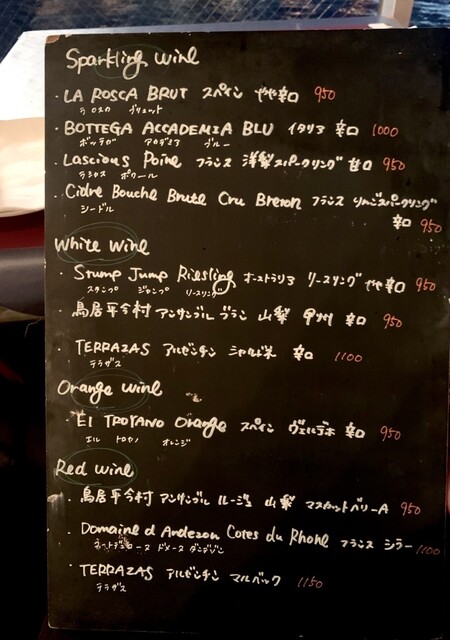 Sparkling wine
・LA ROSCA BRUT スペイン やや辛口 950
ラ ロスカ ブリュット
・BOTTEGA ACCADEMIA BLU イタリア 辛口 1000
ボッテガ アカデミア ブルー
・Lascious Poire フランス 洋梨スパークリング 甘口 950
ラシャス ポワール
・Cidre Bouche Brute Cru Breton フランス りんごスパークリング
シードル
辛口 950
White wine
・Stump Jump Riesling オーストラリア リースリング やや辛口 950
スタンプ ジャンプ リースリング
・鳥居平今村 アンサンブル ブラン 山梨 甲州 辛口 950
・TERRAZAS アルゼンチン シャルドネ 辛口 1100
テラザス
Orange wine
・El TROYANO Orange スペイン ヴェルデホ 辛口 950
エル トロヤノ オレンジ
Red wine
・鳥居平今村 アンサンブル ルージュ 山梨 マスカットベリーA 950
・Domaine d Andezon Cotes du Rhone フランス シラー 1100
コートデュローヌ ドメーヌ ダンデゾン
・TERRAZAS アルゼンチン マルベック 1150
テラザス